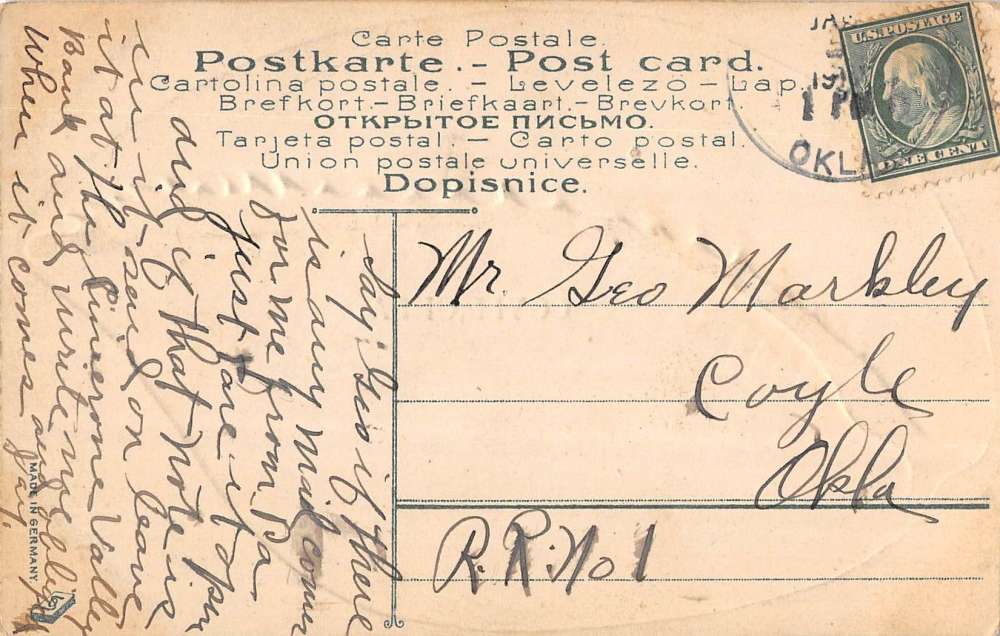 Carte Postale.
Postkarte. - Post card.
Cartolina postale. - Levelező - Lap.
Brefkort. - Briefkaart. - Brevkort.
ОТКРЫТОЕ ПИСЬМО.
Tarjeta postal. - Carto postal.
Union postale universelle.
Dopisnice.
U.S. POSTAGE
ONE CENT
19
1 P
OKL
Say Geo if there
is any mail comes
for me from Pa
just tare it opn
and if that note is
in it send or leave
it at the Cimerone Valley
Bank and write me
When it comes and
Jay.
Mr. Geo Markley
Coyle
Okla
R.R. No 1
MADE IN GERMANY